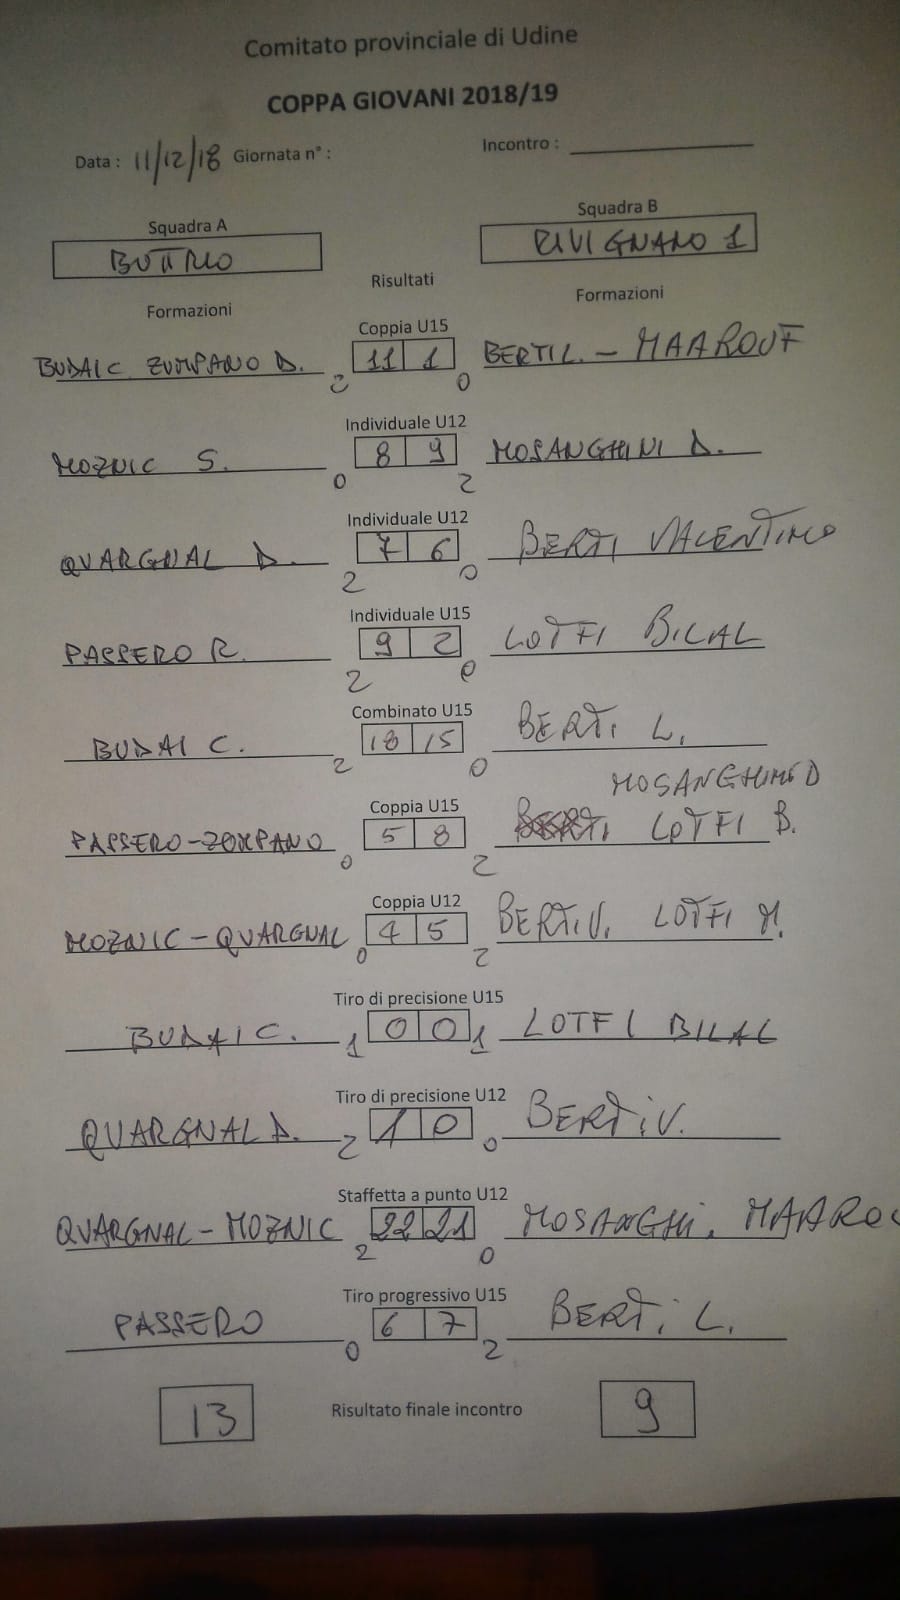 Comitato provinciale di Udine
COPPA GIOVANI 2018/19
Data : 11/12/18 Giornata n° : Incontro :
Squadra A Squadra B
BUTTRIO RIVIGNANO 1
Risultati
Formazioni Formazioni
Coppia U15
BUDAI C. ZUMPANO D. 11 1 BERTI L. - MAAROUF
2 0
Individuale U12
MOZNIC S. 8 9 MOSANGHINI D.
0 2
Individuale U12
QUARGNAL D. 7 6 BERTI VALENTINO
2 0
Individuale U15
PASSERO R. 9 2 LOTFI BILAL
2 0
Combinato U15
BUDAI C. 18 15 BERTI L.
2 0
MOSANGHINI D
Coppia U15
PASSERO-ZOMPANO 5 8 LOTFI B.
0 2
Coppia U12
MOZNIC-QUARGNAL 4 5 BERTI V. LOTFI M.
0 2
Tiro di precisione U15
BUDAI C. 1 0 0 1 LOTFI BILAL
Tiro di precisione U12
QUARGNAL D. 2 10 0 0 BERTI V.
Staffetta a punto U12
QUARGNAL-MOZNIC 22 21 MOSANGHI. MAAROU
2 0
Tiro progressivo U15
PASSERO 6 7 BERTI L.
0 2
13 Risultato finale incontro 9